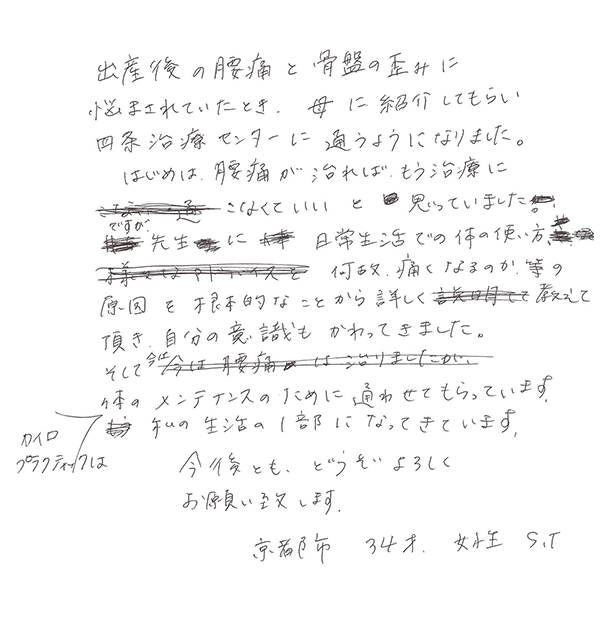 出産後の腰痛と骨盤の歪みに
悩まされていたとき、母に紹介してもらい
四条治療センターに通うようになりました。
はじめは、腰痛が治れば、もう治療に
こなくていいと思っていました
ですが
先生に日常生活での体の使い方
何故、痛くなるのか、等の
原因を根本的なことから詳しく教えて
頂き、自分の意識もかわってきました。
そして今は
今は腰痛は治りましたが、
体のメンテナンスのために通わせてもらっています。
カイロ
プラクティックは
私の生活の1部になってきています。
今後とも、どうぞよろしく
お願い致します。
京都市 34才. 女性 S.T